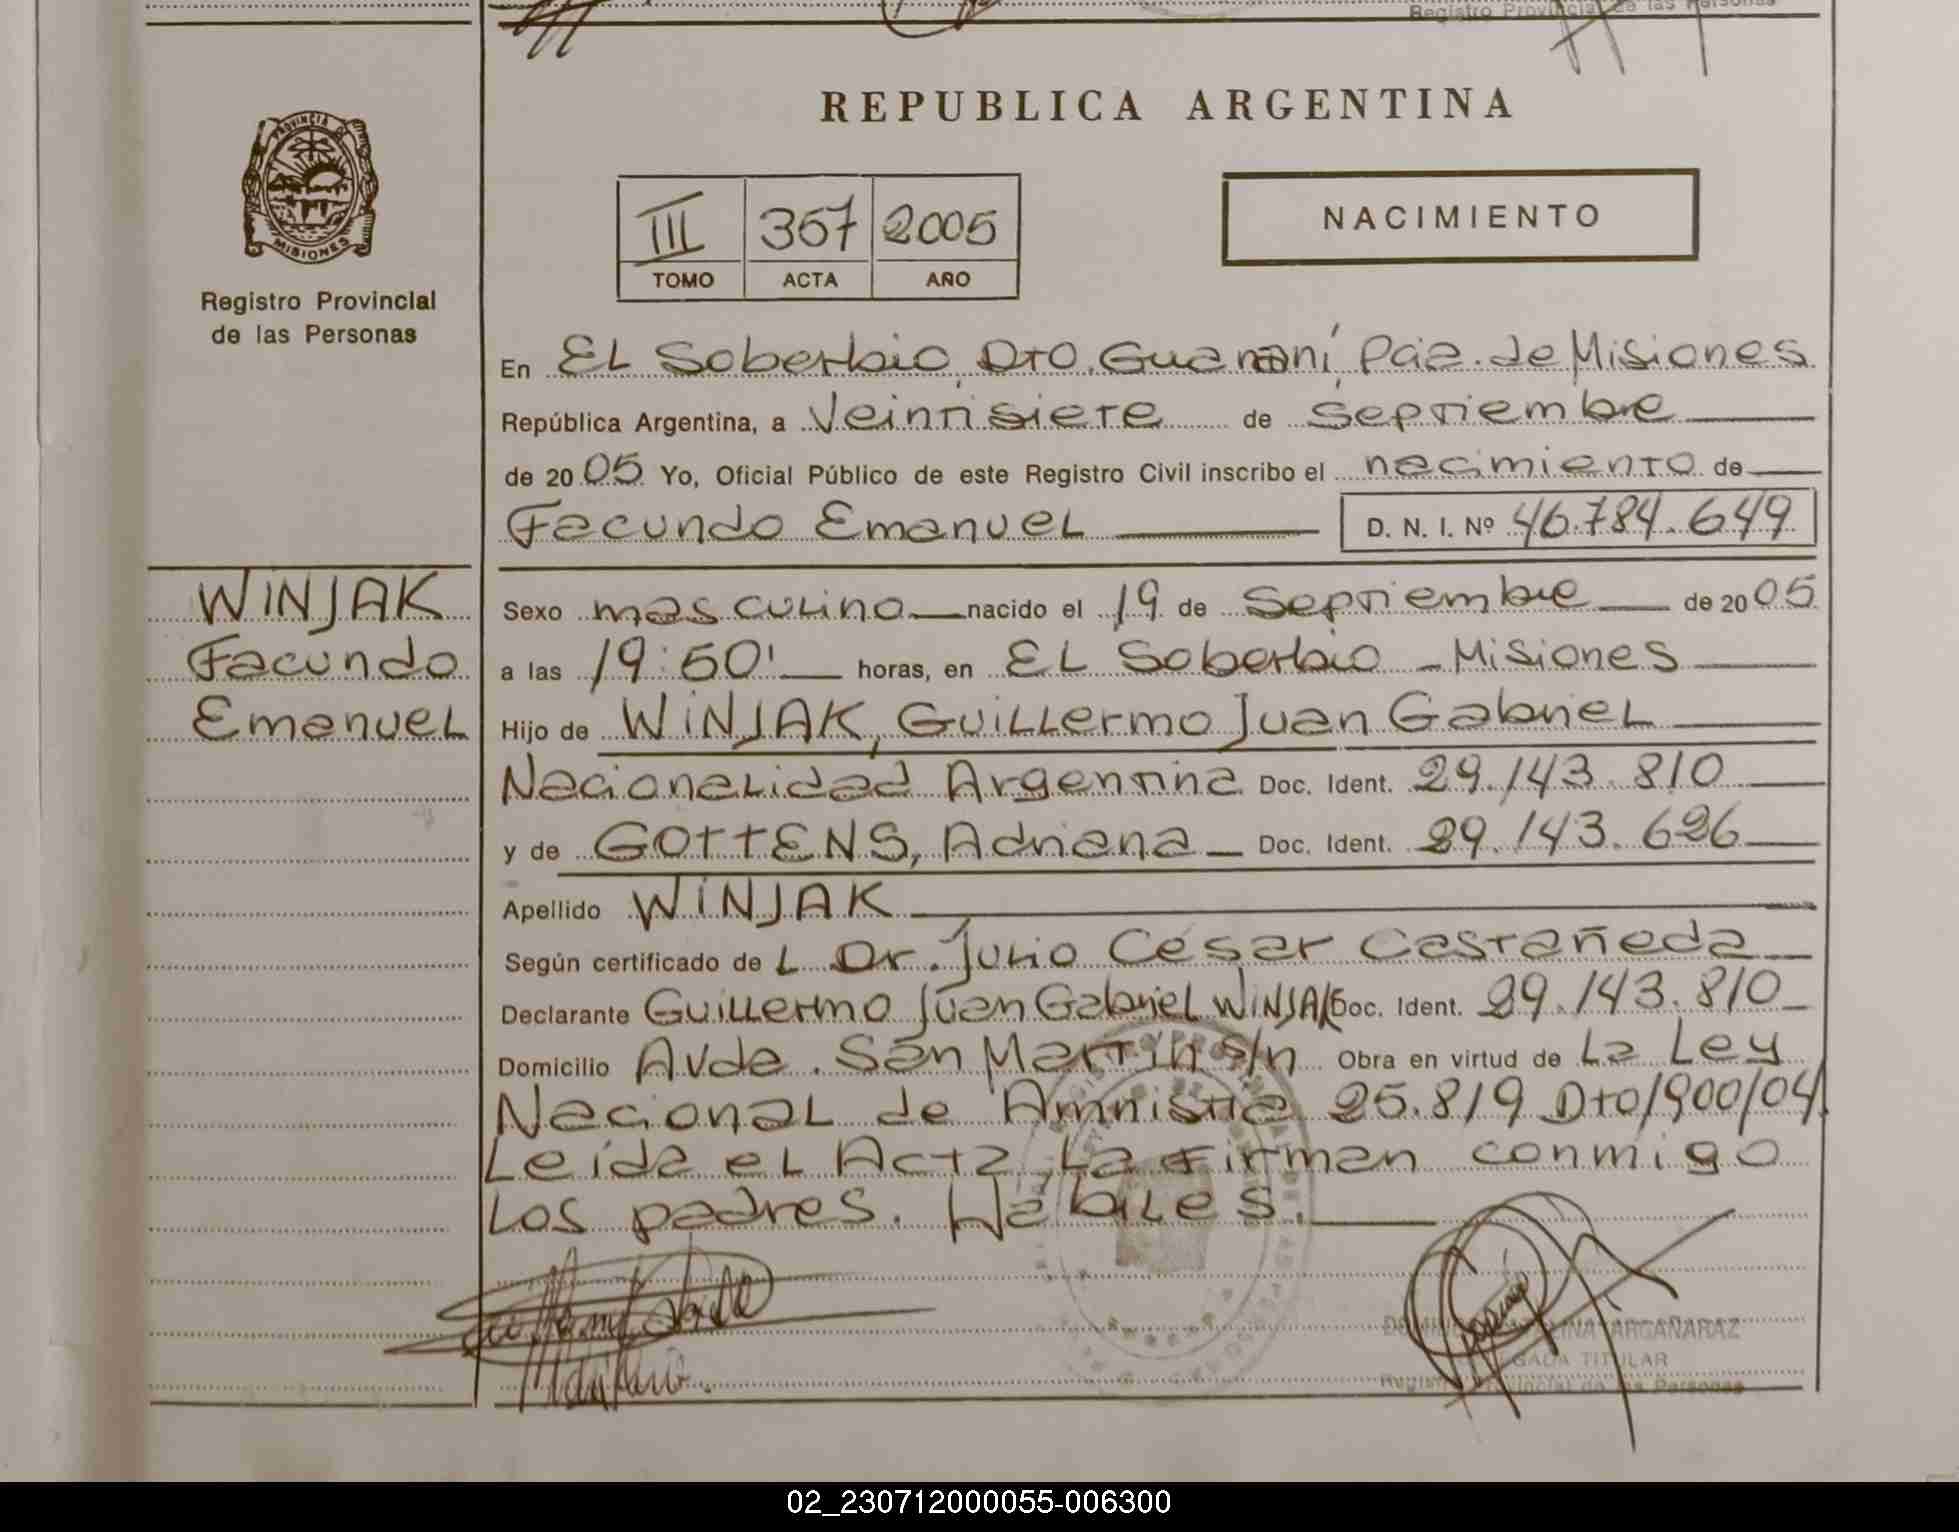 Registro Provincial de las Personas
REPUBLICA ARGENTINA
PROVINCIA DE
MISIONES
Registro Provincial
de las Personas
III 357 2005
TOMO ACTA AÑO
NACIMIENTO
En EL Soberbio, Dto. Guaraní, Pcia. de Misiones
República Argentina, a Veintisiete de Septiembre
de 2005 Yo, Oficial Público de este Registro Civil inscribo el nacimiento de
Facundo Emanuel D. N. I. Nº 46.784.649
WINJAK
Facundo
Emanuel
Sexo masculino nacido el 19 de Septiembre de 2005
a las 19:50' horas, en EL Soberbio - Misiones
Hijo de WINJAK, Guillermo Juan Gabriel
Nacionalidad Argentina Doc. Ident. 29.143.810
y de GOTTENS, Adriana Doc. Ident. 29.143.626
Apellido WINJAK
Según certificado de L Dr. Julio César Castañeda
Declarante Guillermo Juan Gabriel WINJAK Doc. Ident. 29.143.810
Domicilio Avda. San Martín s/n Obra en virtud de La Ley
Nacional de Amnistia 25.819 Dto/900/04.
Leída el Acta, La firman conmigo
Los padres. Hábiles.
ARGAÑARAZ
TITULAR
Registro Provincial de las Personas
02_230712000055-006300